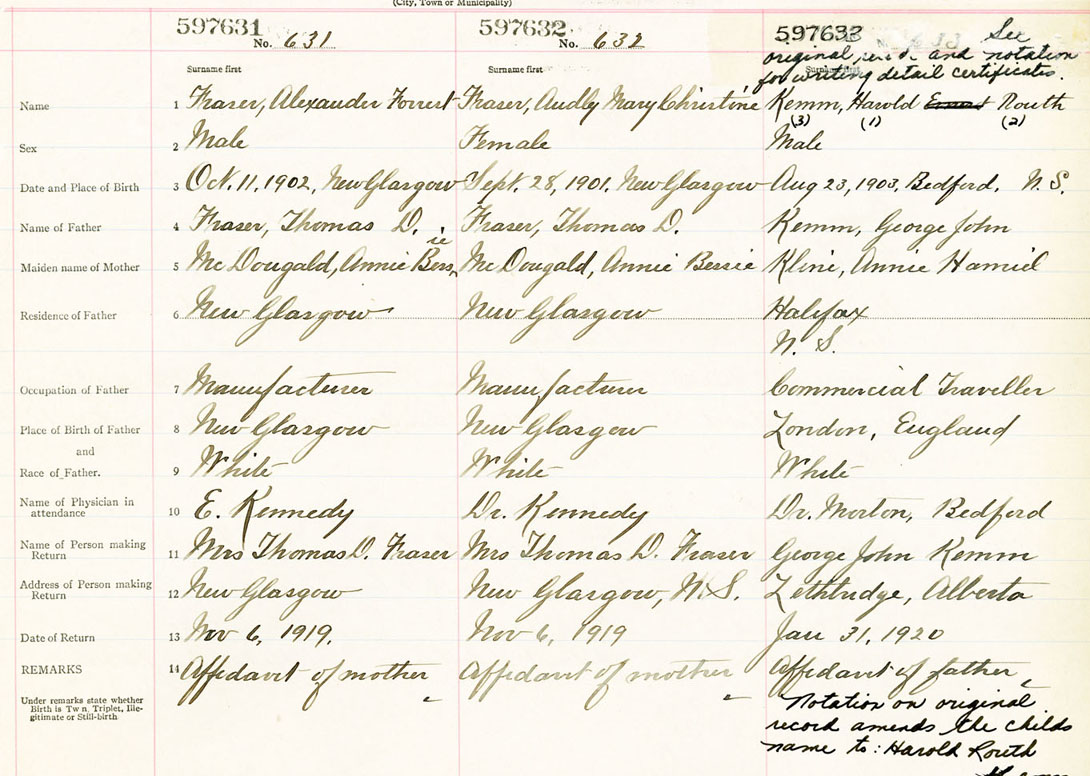 (City, Town or Municipality)
597631 597632 597633 See
No. 631 No. 632 No. 633
original and notation
for writing detail certificates.
Surname first Surname first Surname first
Name 1 Fraser, Alexander Forrest Fraser, Audly Mary Christine Kemm, Harold Ernest Routh
(3) (1) (2)
Sex 2 Male Female Male
Date and Place of Birth 3 Oct. 11, 1902, New Glasgow Sept. 28, 1901. New Glasgow Aug 23, 1903, Bedford. N.S.
Name of Father 4 Fraser, Thomas D. Fraser, Thomas D. Kemm, George John
Maiden name of Mother 5 Mc Dougald, Annie Bessie Mc Dougald, Annie Bessie Kline, Annie Hamid
Residence of Father 6 New Glasgow New Glasgow Halifax
N. S.
Occupation of Father 7 Manufacturer Manufacturer Commercial Traveller
Place of Birth of Father 8 New Glasgow New Glasgow London, England
and
Race of Father. 9 White White White
Name of Physician in
attendance 10 E. Kennedy Dr. Kennedy Dr. Morton, Bedford
Name of Person making
Return 11 Mrs Thomas D. Fraser Mrs Thomas D. Fraser George John Kemm
Address of Person making
Return 12 New Glasgow New Glasgow, N.S. Lethbridge, Alberta
Date of Return 13 Nov 6, 1919. Nov 6, 1919 Jan 31, 1920
REMARKS 14 Affidavit of mother Affidavit of mother Affidavit of father
Under remarks state whether
Birth is Twin, Triplet, Ille-
gitimate or Still-birth
Notation on original
record amends the childs
name to: Harold Routh